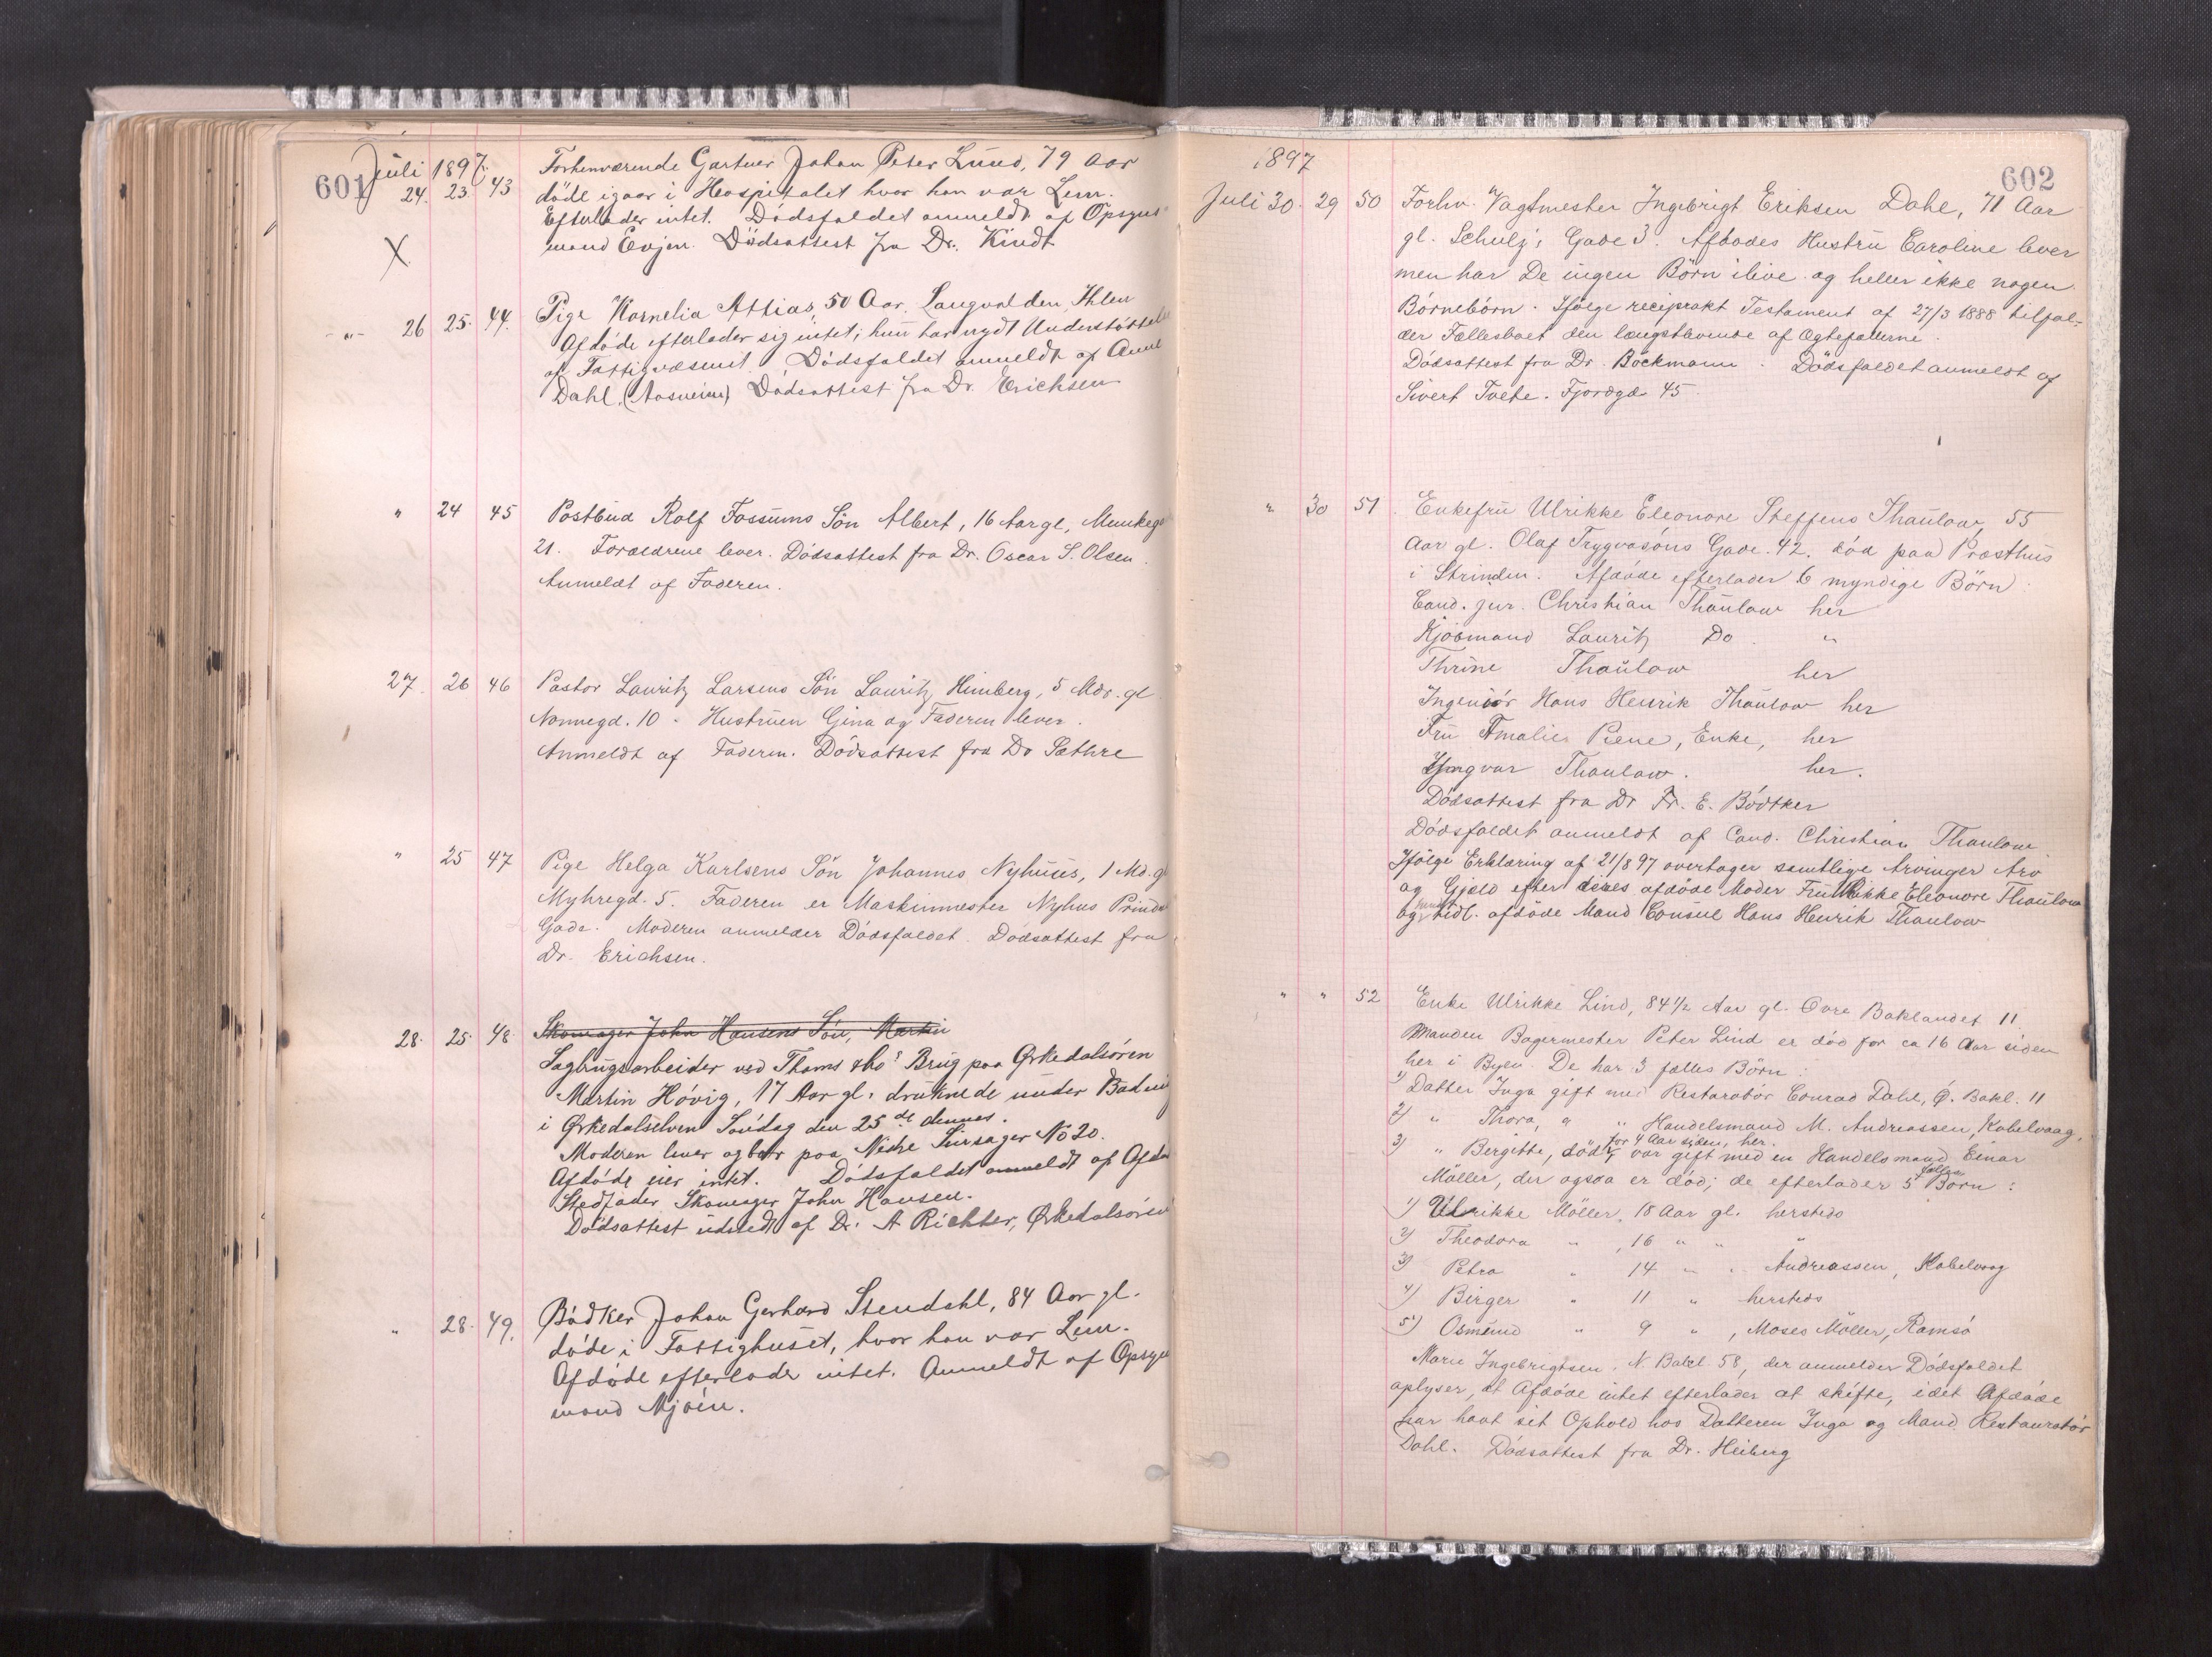 601
Juli 1897.
24. 23. 43 Forhenværende Gartner Johan Peter Lund, 79 Aar
døde igaar i Hospitalet hvor han var Lem.
Efterlader intet. Dödsfaldet anmeldt af Opsyns-
mand Evjen. Dödsattest fra Dr. Kindt
X
-"- 26 25. 44. Pige Kornelia Attias, 50 Aar. Langvolden, Ihlen
Afdöde efterlader sig intet; hun har nydt Understöttelse
af Fattigvæsenet. Dödsfaldet anmeldt af Anne
Dahl, (Aasveien) Dödsattest fra Dr. Erichsen
" 24 45 Postbud Rolf Fossums Sön Albert, 16 Aar gl, Munkegd
21. Forældrene lever. Dödsattest fra Dr. Oscar S. Olsen.
Anmeldt af Faderen.
27. 26 46 Pastor Lauritz Larsens Sön Lauritz Himberg, 5 Mdr. gl
Nonnegd. 10. Hustruen Gina og Faderen lever.
Anmeldt af Faderen. Dödsattest fra Dr Sæthre
" 25 47 Pige Helga Karlsens Sön Johannes Nyhuus, 1 Md. gl
Myhregd. 5. Faderen er Maskinmester Nyhus Prinds
Gade. Moderen anmelder Dödsfaldet. Dödsattest fra
Dr. Erichsen.
28. 25. 48. Skomager John Hansens Sön, Martin
Sagbrugsarbeider ved Thams & Co's Brug paa Ørkedalsören
Martin Hövig, 17 Aar gl. druknede under Badning
i Ørkedalselven Söndag den 25de dennes.
Moderen lever og bor paa Nedre Singsager No 20.
Afdöde eier intet. Dödsfaldet anmeldt af Afdø
Stedfader Skomager John Hansen.
Dödsattest udstedt af Dr. A Richter, Ørkedalsören
" 28. 49. Bödker Johan Gerhard Stendahl, 84 Aar gl.
döde i Fattighuset, hvor han var Lem.
Afdöde efterlader intet. Anmeldt af Opsyns
mand Mjöen.
602
1897
Juli 30. 29 50 Forhv. Vagtmester Ingebrigt Eriksen Dahl, 71 Aar
gl. Schulz's Gade 3. Afdödes Hustru Caroline lever
men har De ingen Börn ilive og heller ikke nogen
Börnebörn. Ifölge reciprokt Testament af 27/3 1888 tilfal-
der Fællesboet den længstlevende af Ægtefællerne.
Dödsattest fra Dr. Böckmann. Dödsfaldet anmeldt af
Sivert Tvete. Fjordgd. 45.
" 30 51. Enkefru Ulrikke Eleonore Steffens Thaulow, 55
Aar gl. Olaf Trygvasöns Gade. 42. död paa Præsthus
i Strinden. Afdöde efterlader 6 myndige Börn.
Cand. jur. Christian Thaulow her
Kjöbmand Lauritz Do. "
Thrine Thaulow her
Ingeniör Hans Henrik Thaulow her
Fru Amalie Piene, Enke, her
Yngvar Thaulow. her.
Dödsattest fra Dr Fr. E. Bödtker
Dödsfaldet anmeldt af Cand. Christian Thaulow
Ifölge Erklæring af 21/8 97 overtager samtlige Arvinger Arv
og Gjæld efter deres afdöde Moder Fru Ulrikke Eleonore Thaulow
og hendes tidl. afdöde Mand Consul Hans Henrik Thaulow
" " 52 Enke Ulrikke Lind, 84 1/2 Aar gl. Övre Baklandet 11
Manden Bagermester Peter Lind er död for ca 16 Aar siden
her i Byen. De har 3 fælles Börn:
1) Datter Inga gift med Restaratör Conrad Dahl, Ø. Bakl. 11
2) " Thora, " " Handelsmand M. Andreassen, Kabelvaag.
3) " Birgitte, död for 4 Aar siden, her. var gift med en Handelsmand Einar
Möller, der ogsaa er död; de efterlader 5 fælles Börn:
1) Ulrikke Möller, 18 Aar gl. herstéds
2) Theodora " , 16 " " "
3) Petra " 14 " " Andreassen, Kabelvaag
4) Birger " 11 " hersteds
5) Osmund " 9 " , Moses Möller, Ramsö
Marie Ingebrigtsen. N. Bakl. 58, der anmelder Dödsfaldet
oplyser, at Afdöde intet efterlader at skifte, idet Afdöde
har havt sit Ophold hos Datteren Inga og Mand Restauratör
Dahl. Dödsattest fra Dr. Heiberg